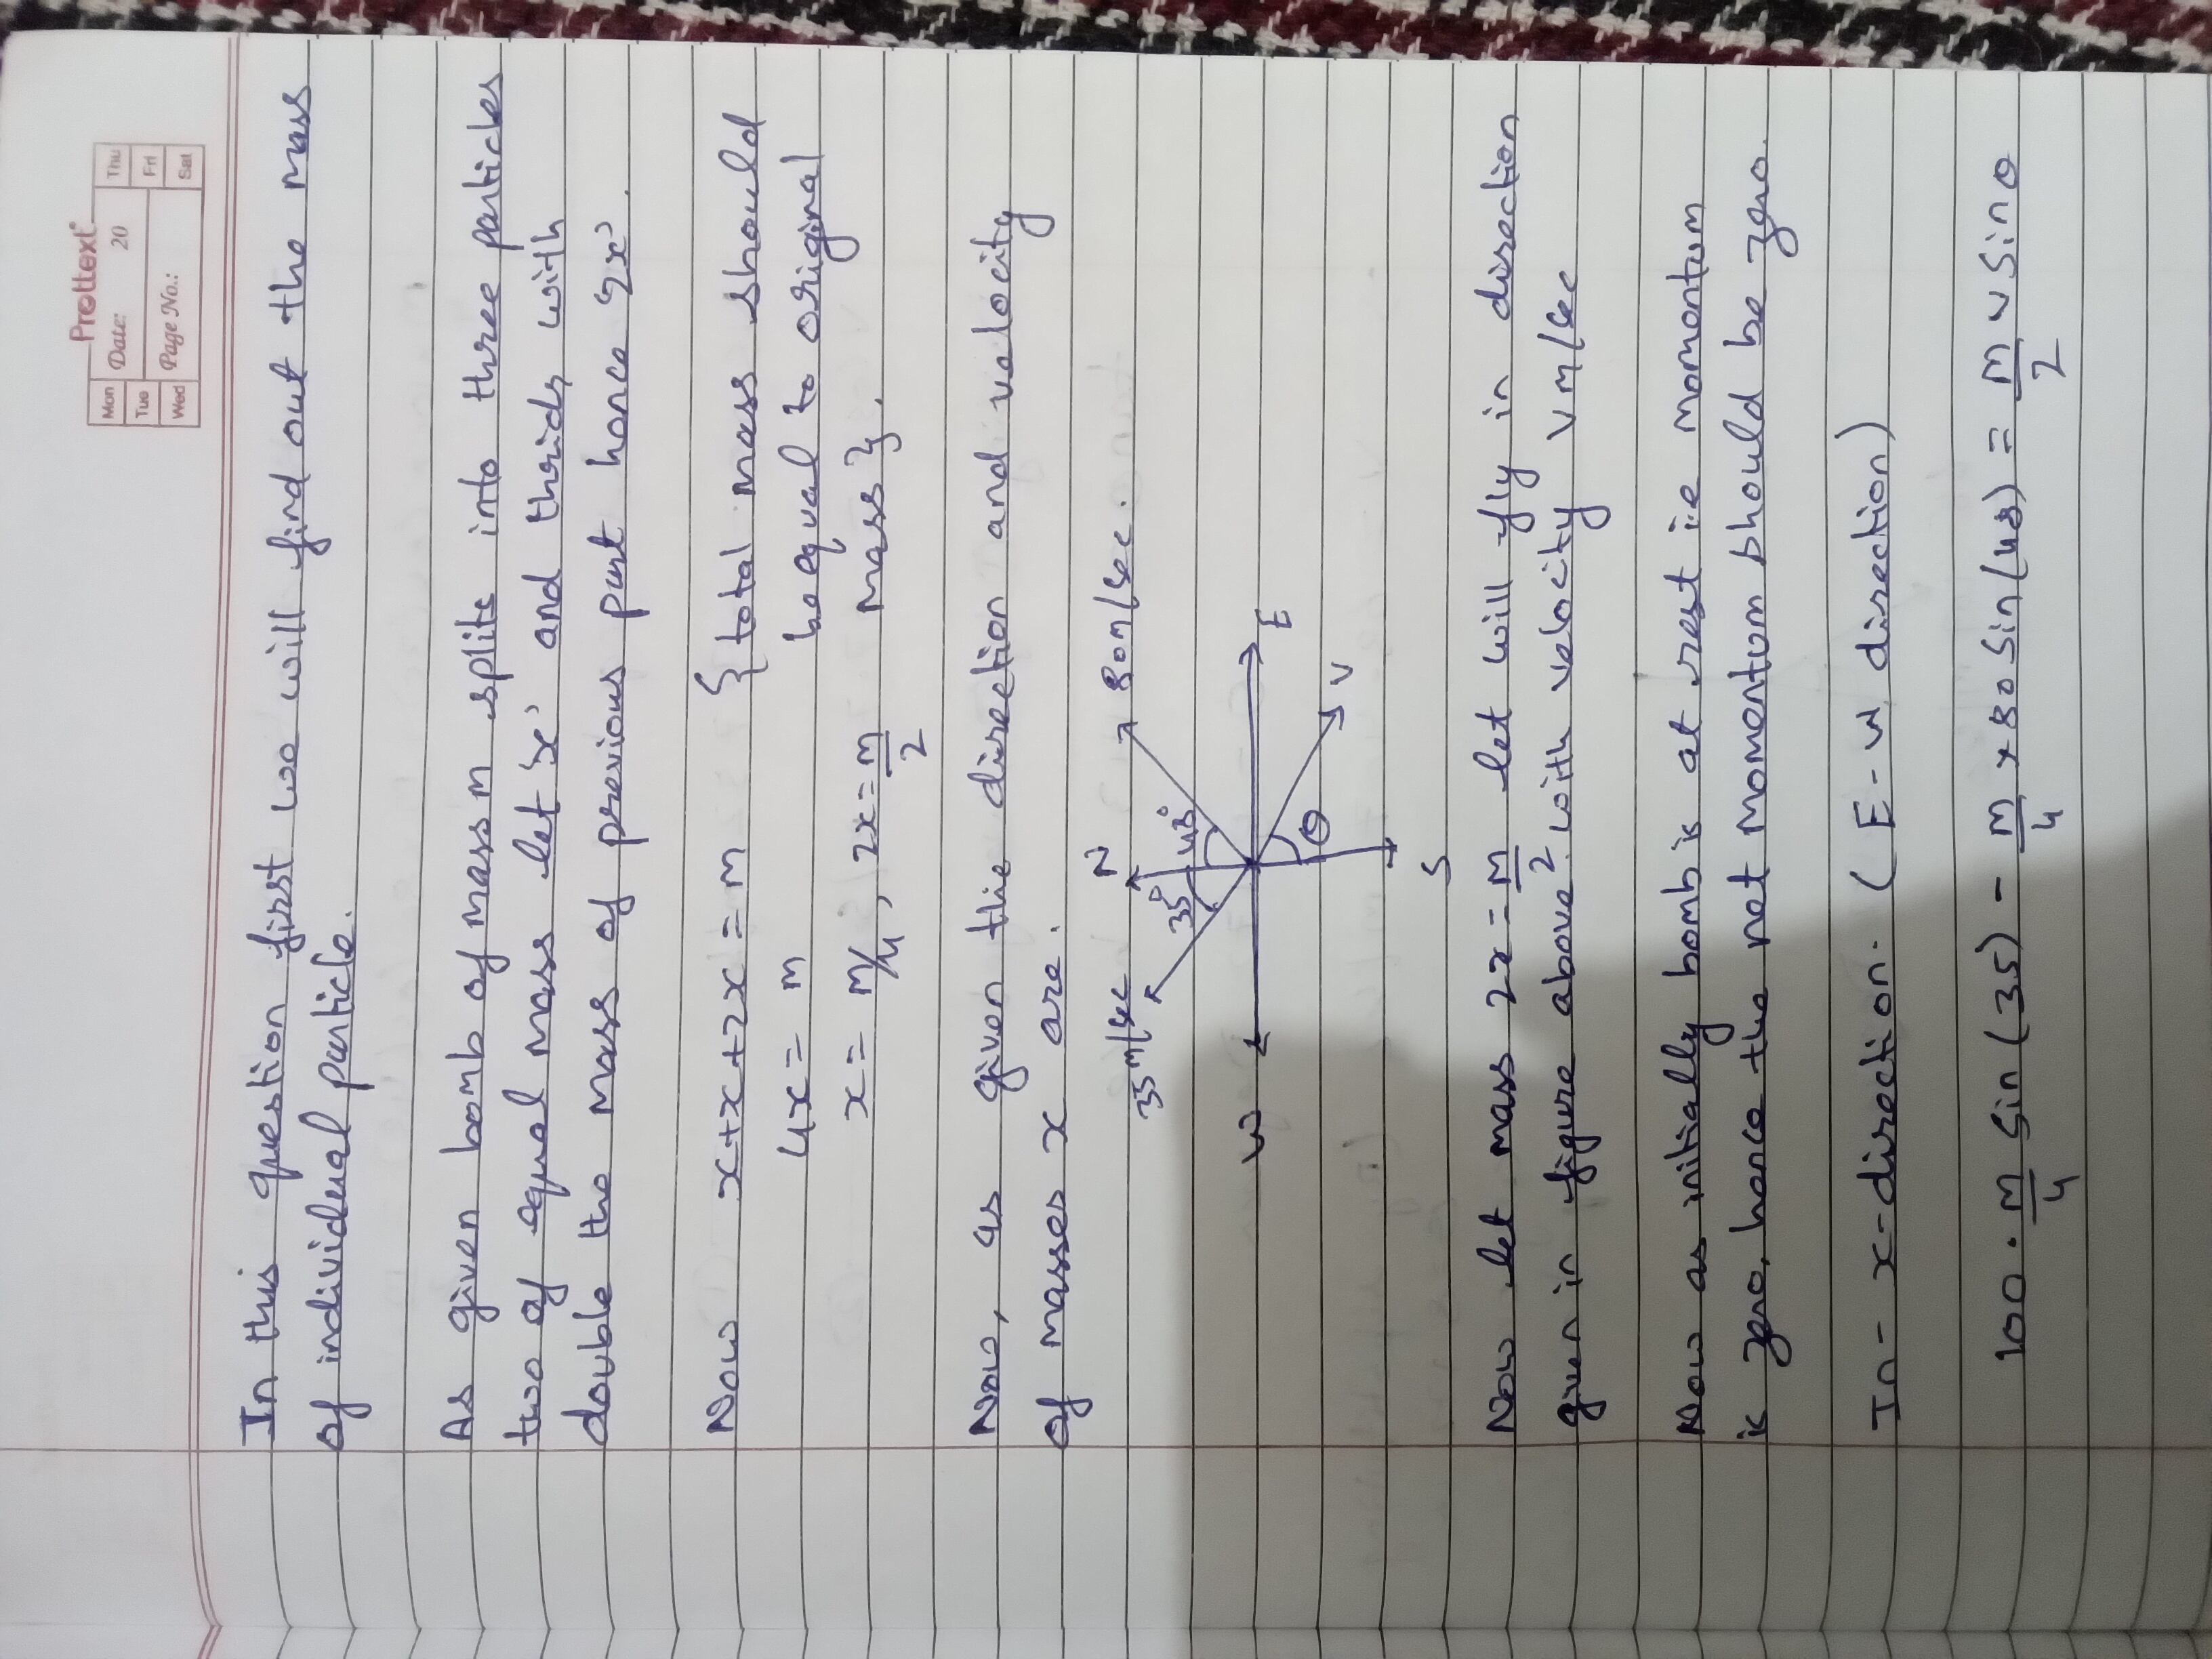 Prottext
Mon Tue Wed Date: 20 Page No.: Thu Fri Sat
In this question first we will find out the mass
of individual particle.
As given bomb of mass m splits into three particles
two of equal mass let 'x' and thirds with
double the mass of previous part hence '2x'.
Now x+x+2x = m { total mass should
4x = m be equal to original
x = m/4, 2x = m/2 mass }.
Now, as given the direction and velocity
of masses x are.
35 m/sec N 80 m/sec.
35° 48°
W E
θ V
S
Now let mass 2x = m/2 let will fly in direction
given in figure above with velocity V m/sec
Now as initially bomb is at rest ie momentum
is zero, hence the net momentum should be zero.
In - x-direction. (E-W direction)
100 · m/4 sin(35) - m/4 × 80 sin(48) = m/2 v sin θ